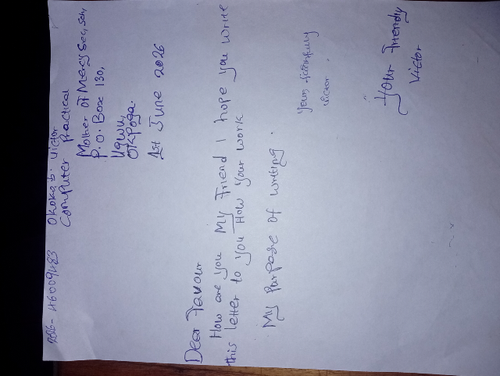 Okoka b. Victor
Computer Practical
Mother of Mercy Sec, Sch,
P.O. Box 130,
Ugwu,
Okpoga.
1st June 2026
Dear Favour
How are you My Friend I hope you write
this letter to you How your work
My purpose of writing.
Your faithfully
Victor.
Your friendly
Victor